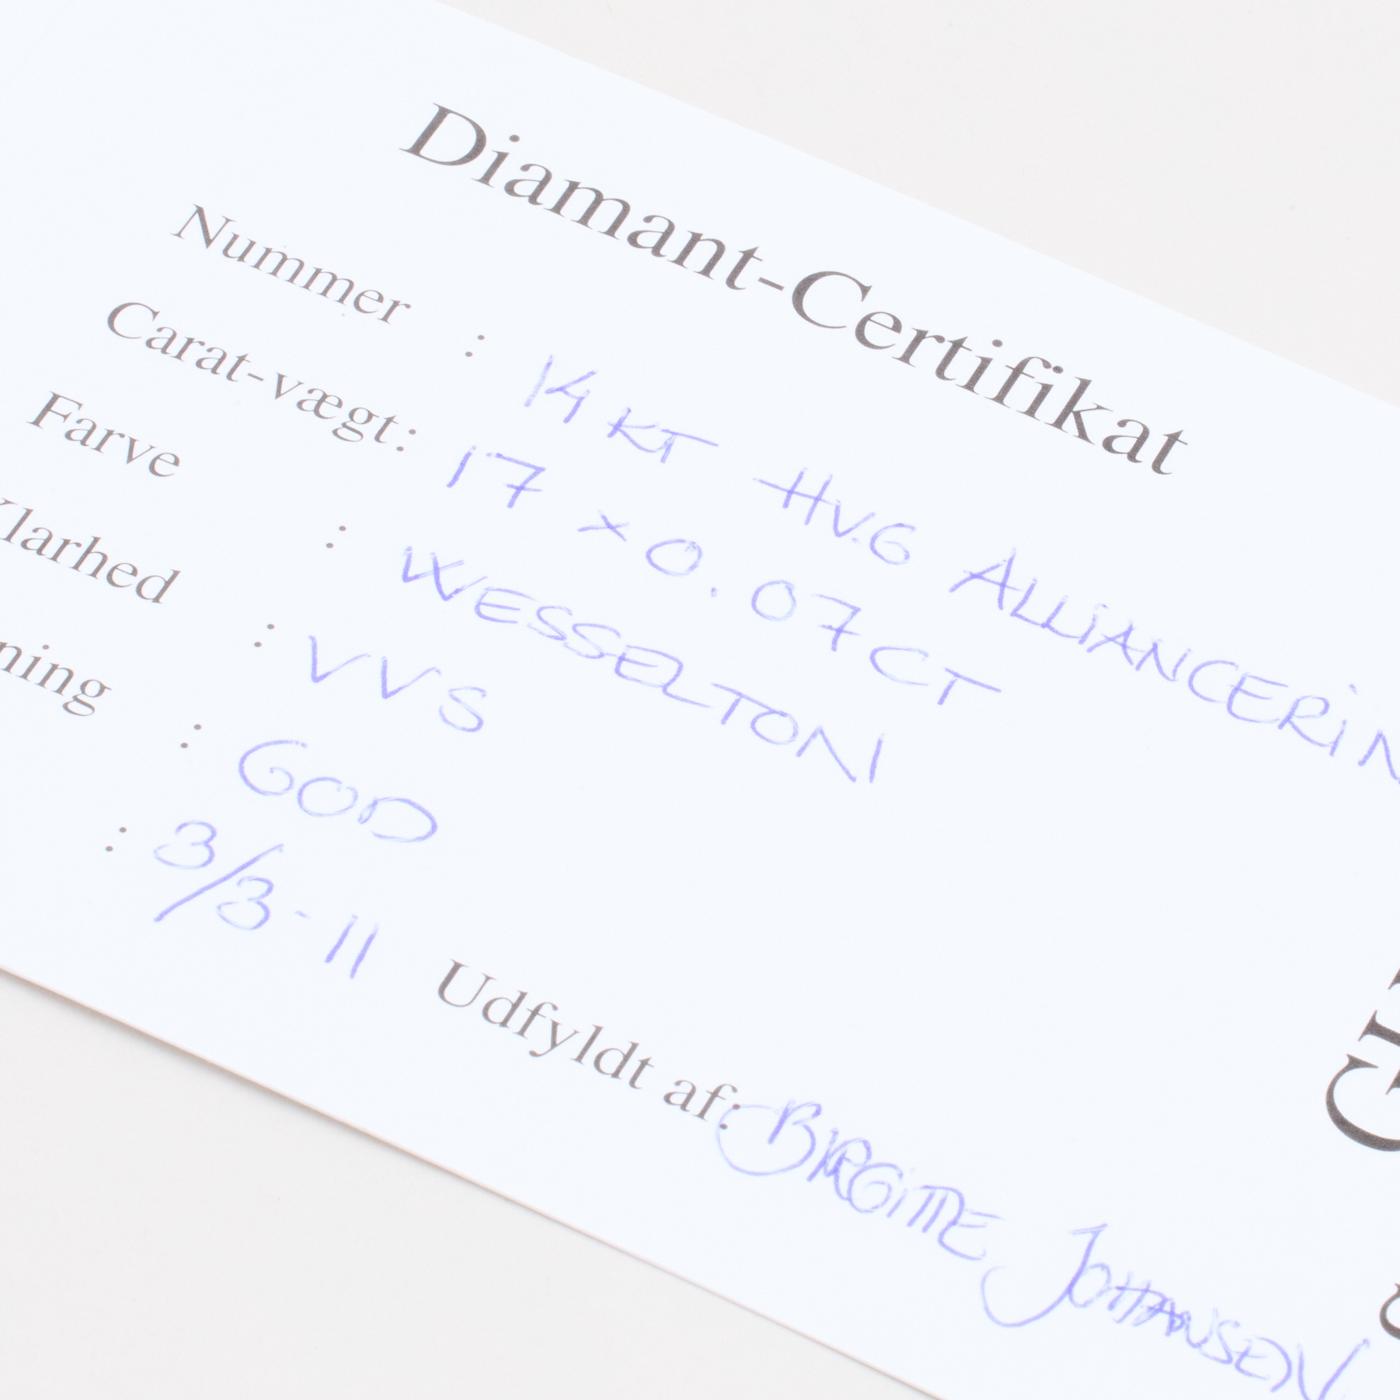 Diamant-Certifikat
Nummer : 14 KT HV.G ALLIANCERIN
Carat-vægt: 17 x 0.07 CT
Farve : WESSELTON
Klarhed : VVS
ning : GOD
: 3/3-11
Udfyldt af: BIRGITTE JOHANSEN